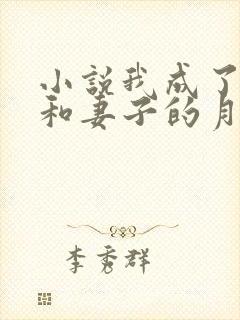 小説我成了
和妻子的月
李秀群